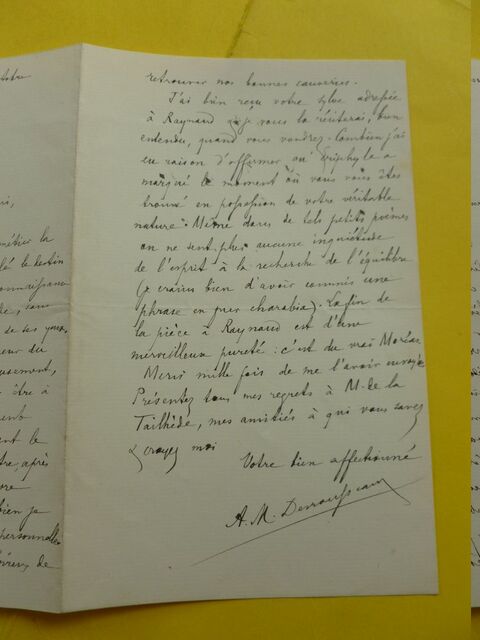 retrouver nos bonnes causeries.
J'ai bien reçu votre sylve adressée
à Raynaud je vous la réciterai, bien
entendu, quand vous voudrez. Combien j'ai
eu raison d'affirmer qu'Eriphyle a
marqué le moment où vous vous êtes
trouvé en possession de votre véritable
nature. Même dans de tels petits poèmes
on ne sent plus aucune inquiétude
de l'esprit à la recherche de l'équilibre
(je crains bien d'avoir commis une
phrase en pur charabia). La fin de
la pièce à Raynaud est d'une
merveilleuse pureté : c'est du vrai Moréas
Merci mille fois de me l'avoir envoyée
Présentez tous mes regrets à M. de la
Tailhède, mes amitiés à qui vous savez
& croyez moi
Votre bien affectionné
A. M. Desrousseaux
métier la
le destin
connaissance
de ses yeux,
être à
ent le
tre, après
bien je
personnelles